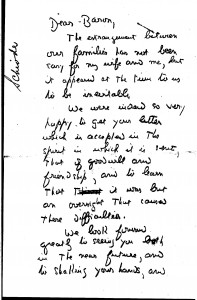 Dear Baron,
The estrangement between
our families has not been
easy for my wife and me, but
it appeared at the time to us
to be inevitable.
We were indeed so very
happy to get your letter
which is accepted in the
spirit in which it is sent,
that of goodwill and
friendship, and to learn
that it was but
an oversight that caused
these difficulties.
We look forward
greatly to seeing you both
in the near future, and
to shaking your hands, and